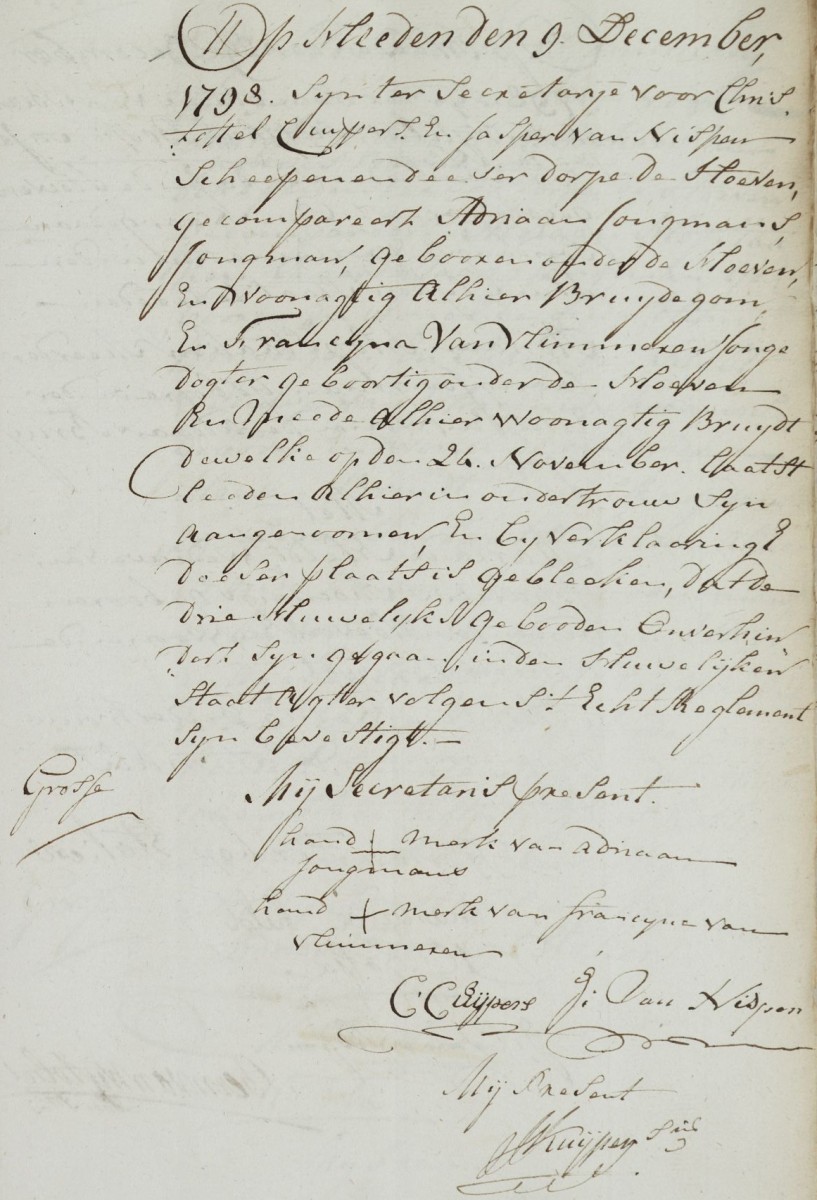 Op Heeden den 9. December,
1798. Syn ter Secretarye voor Chris
toffel Cuypers. En Jasper van Nispen
Scheepenen deeser dorpe de Hoeven,
gecompareert Adriaan Jongmans,
Jongman, gebooren onder de Hoeven,
En Woonagtig Alhier Bruydegom,
En Francyna Van Vlimmeren Jonge
dogter geboortig onder de Hoeven
En Meede Alhier woonagtig Bruydt
dewelke op den 24. November. laatst
leeden alhier in ondertrouw syn
aangenoomen, En by verklaaringe
deeser plaats is gebleeken, dat de
drie Huwelyks gebooden Onverhin
dert syn gegaan, in den Huwelijken
Staat agter volgens 't Echt Reglement
syn bevestigt.
Grosse
Mij Secretaris present.
hand merk van adriaan
Jongmans
hand merk van francyna van
vlimmeren
C. Cuijpers J: Van Nispen
Mij Present
Kuijpers